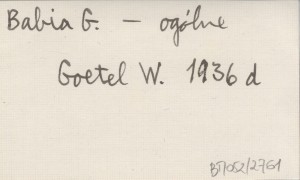 Babia G. – ogólne
Goetel W. 1936 d
BT/052/2761